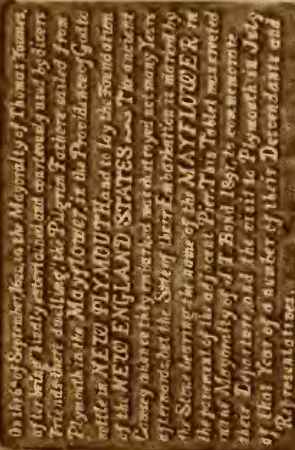 On the 6th of September 1620, in the Mayoralty of Thomas Townes,
after being kindly entertained and courteously used by divers
Friends there dwelling, the Pilgrim Fathers sailed from
Plymouth in the Mayflower, in the Providence of God to
settle in NEW PLYMOUTH, and to lay the Foundation
of the NEW ENGLAND STATES. The ancient
Cawsey whence they embarked was destroyed not many Years
afterwards, but the Site of their Embarkation is marked by
the Stone bearing the name of the MAYFLOWER in
the pavement of the adjacent Pier. This Tablet was erected
in the Mayoralty of J. T. Bond 1891, to commemorate
their Departure, and the visit to Plymouth in July
of that Year of a number of their Descendants and
Representatives.